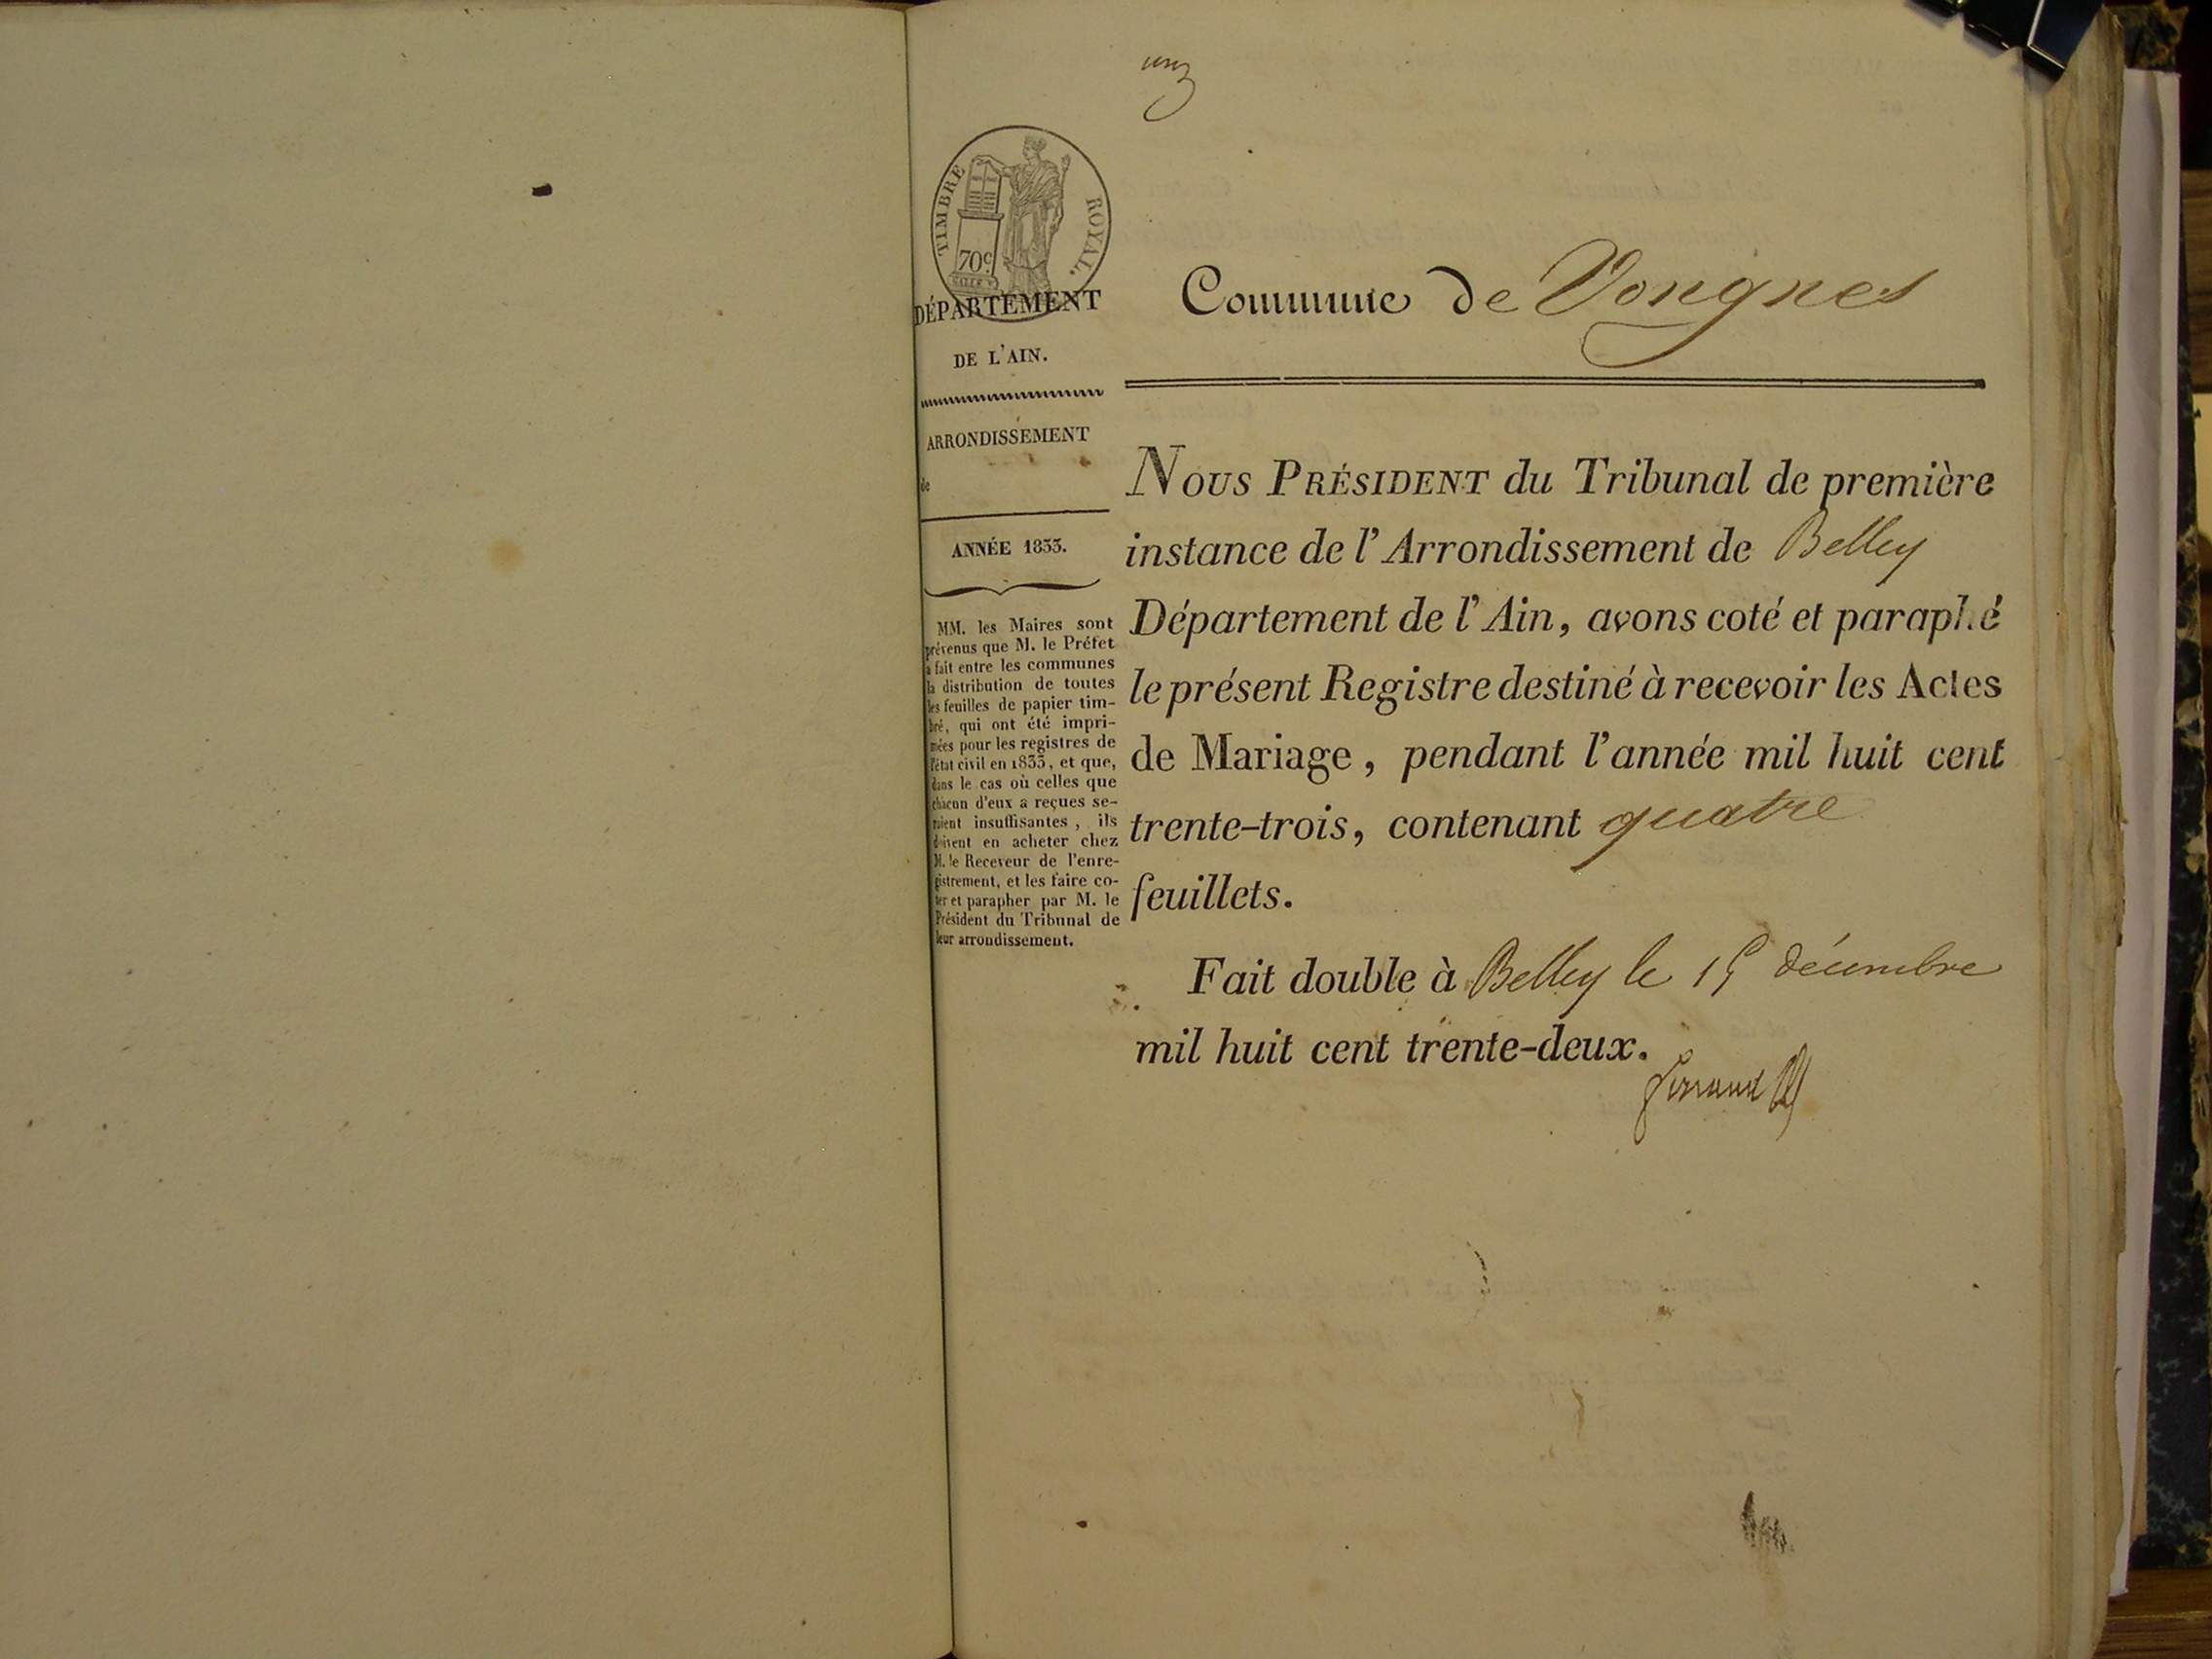 un
TIMBRE ROYAL.
70c
DÉPARTEMENT
DE L'AIN.
ARRONDISSEMENT
de
ANNÉE 1833.
MM. les Maires sont
prévenus que M. le Préfet
a fait entre les communes
la distribution de toutes
les feuilles de papier tim-
bré, qui ont été impri-
mées pour les registres de
l'état civil en 1833, et que,
dans le cas où celles que
chacun d'eux a reçues se-
raient insuffisantes, ils
doivent en acheter chez
M. le Receveur de l'enre-
gistrement, et les faire co-
ter et parapher par M. le
Président du Tribunal de
leur arrondissement.
Commune de Vongnes
NOUS PRÉSIDENT du Tribunal de première
instance de l'Arrondissement de Belley
Département de l'Ain, avons coté et paraphé
le présent Registre destiné à recevoir les Actes
de Mariage, pendant l'année mil huit cent
trente-trois, contenant quatre
feuillets.
Fait double à Belley le 15 décembre
mil huit cent trente-deux.